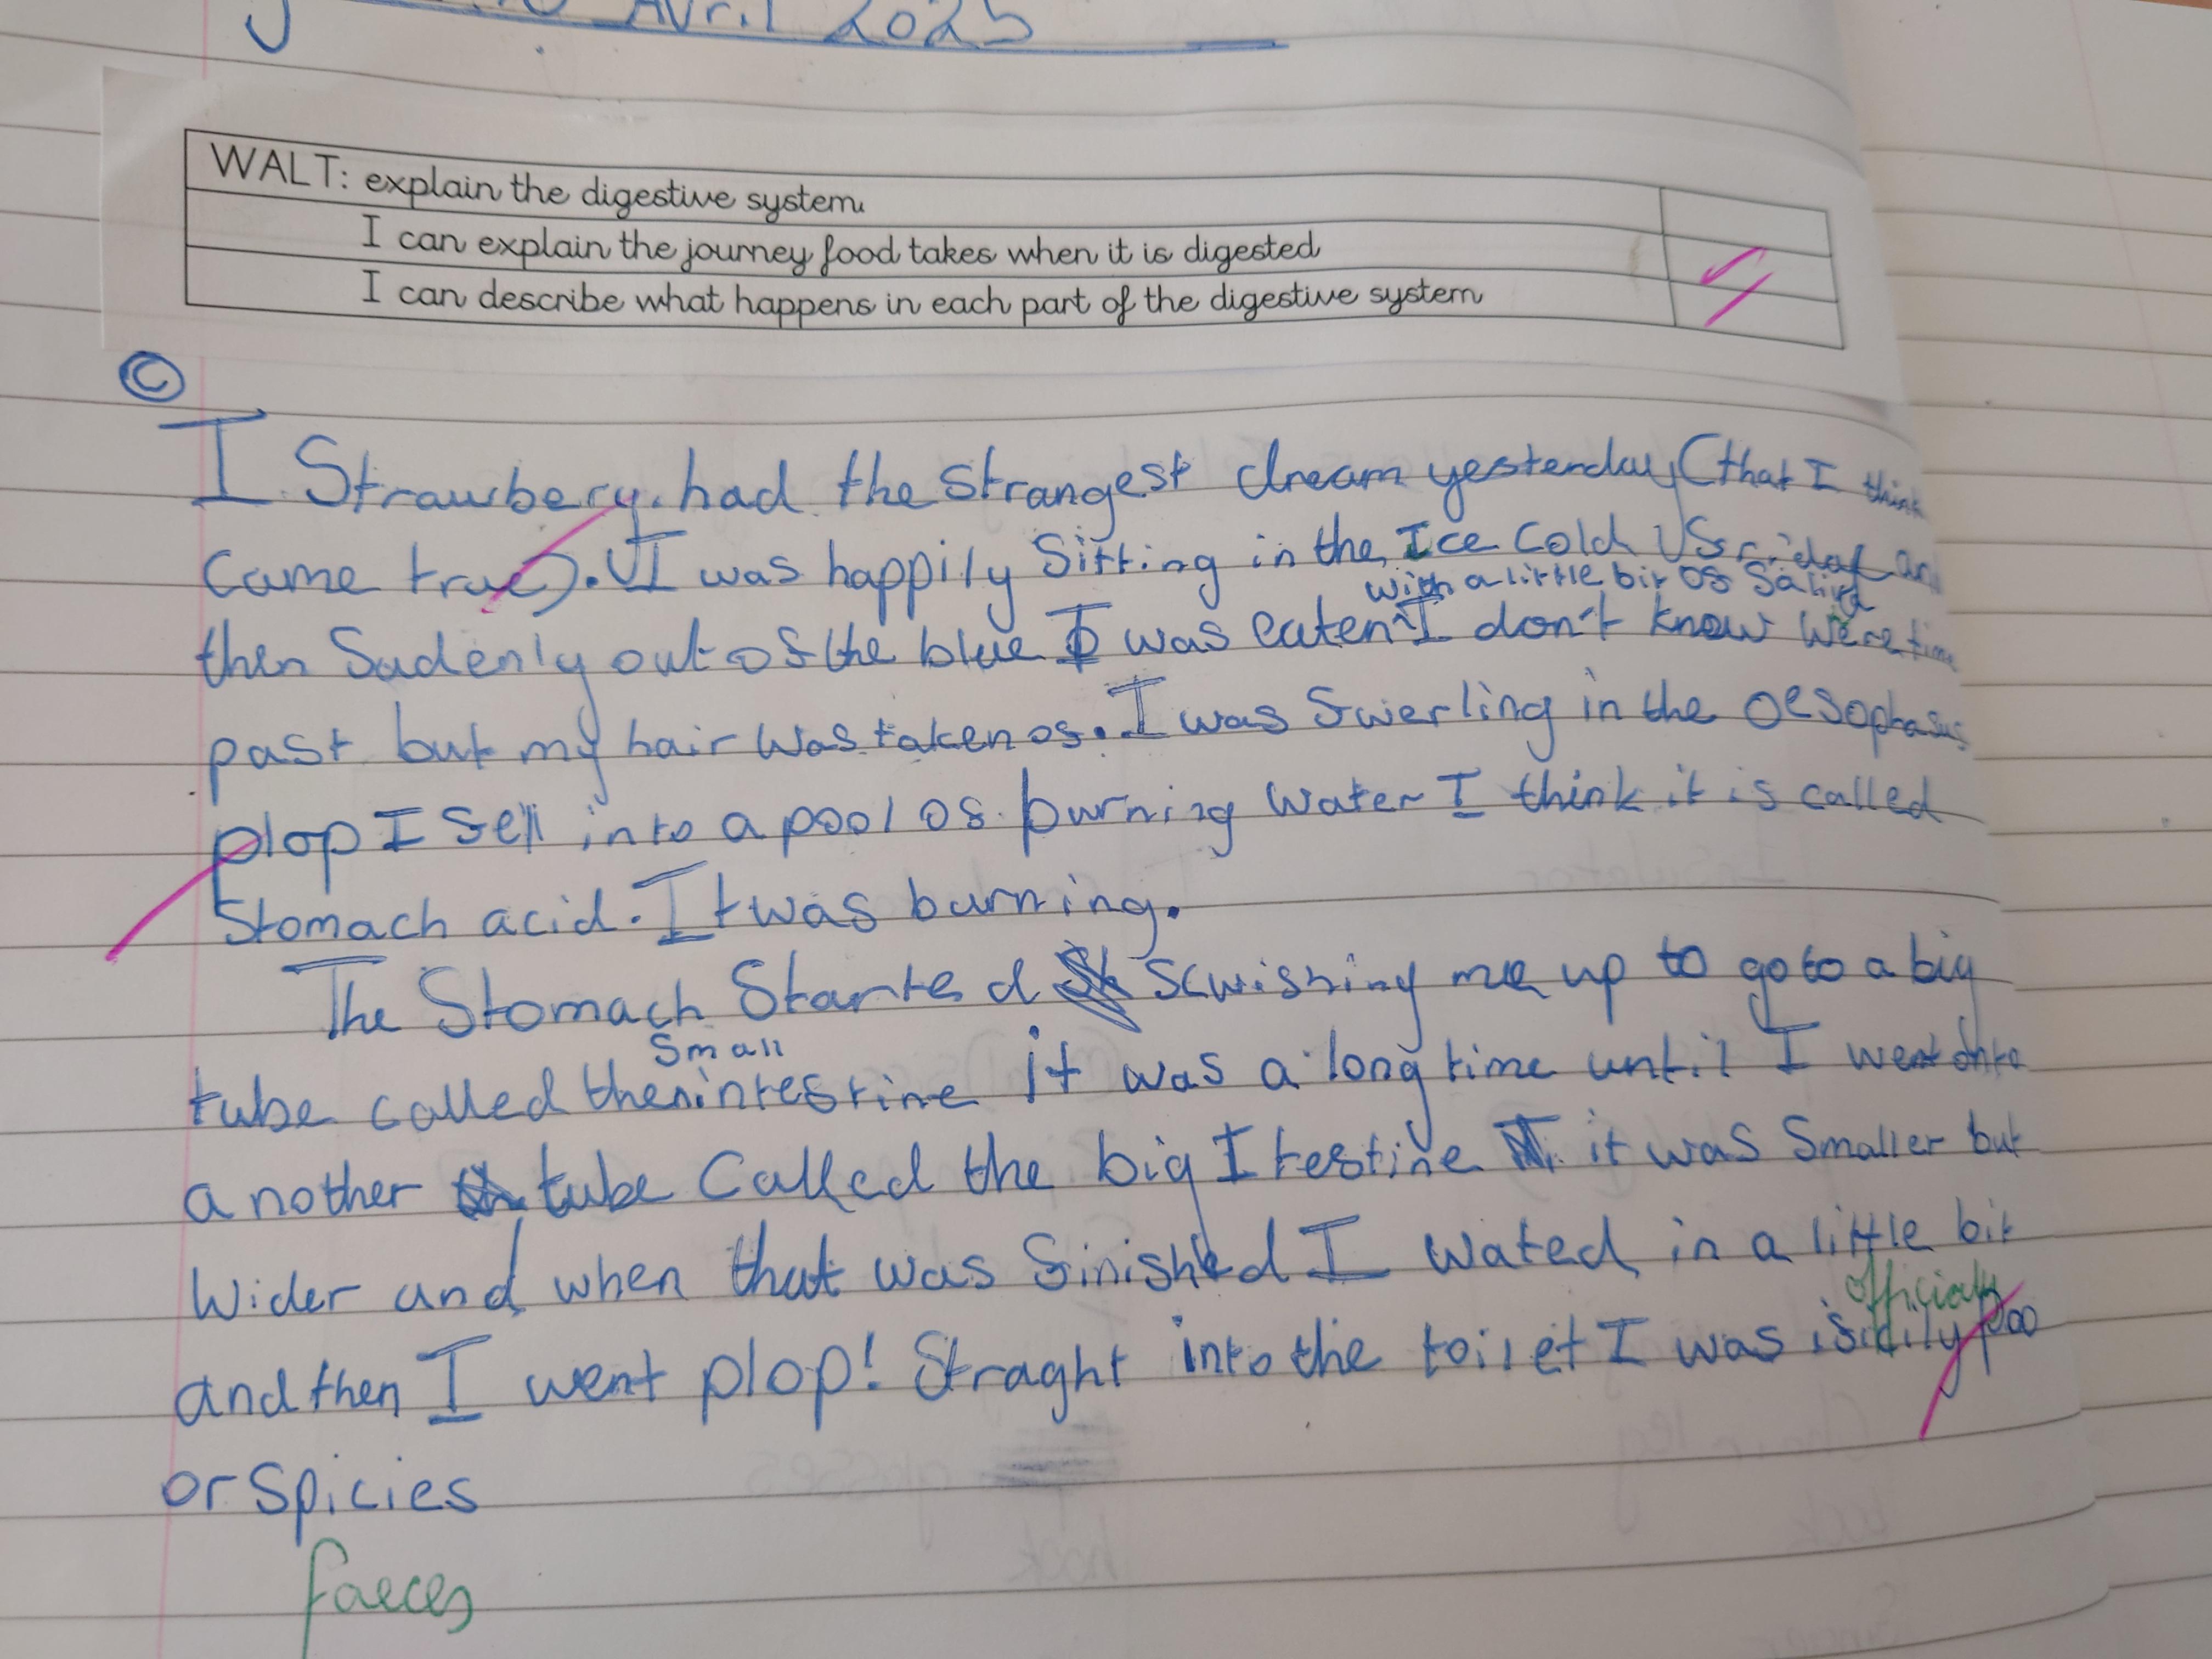 Avril 2025
WALT: explain the digestive system.
I can explain the journey food takes when it is digested
I can describe what happens in each part of the digestive system
©
I Strawbery. had the strangest dream yesterday (that I think
came true). I was happily sitting in the Ice cold
with a little bit os saliva
then sudenly out os the blue I was eaten I don't know were time
past but my hair was taken os. I was swerling in the oesophasus
plop I sell into a pool os burning water I think it is called
stomach acid. It was burning.
The stomach started scwishing me up to go to a big
small
tube called the intestine it was a long time until I went onto
another tube called the big Itestine it was smaller but
wider and when that was sinished I wated in a little bit
officialy
and then I went plop! straght into the toilet I was poo
or spicies
faeces